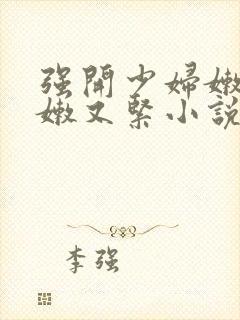 强開少婦嫩
嫩又緊小說
李强